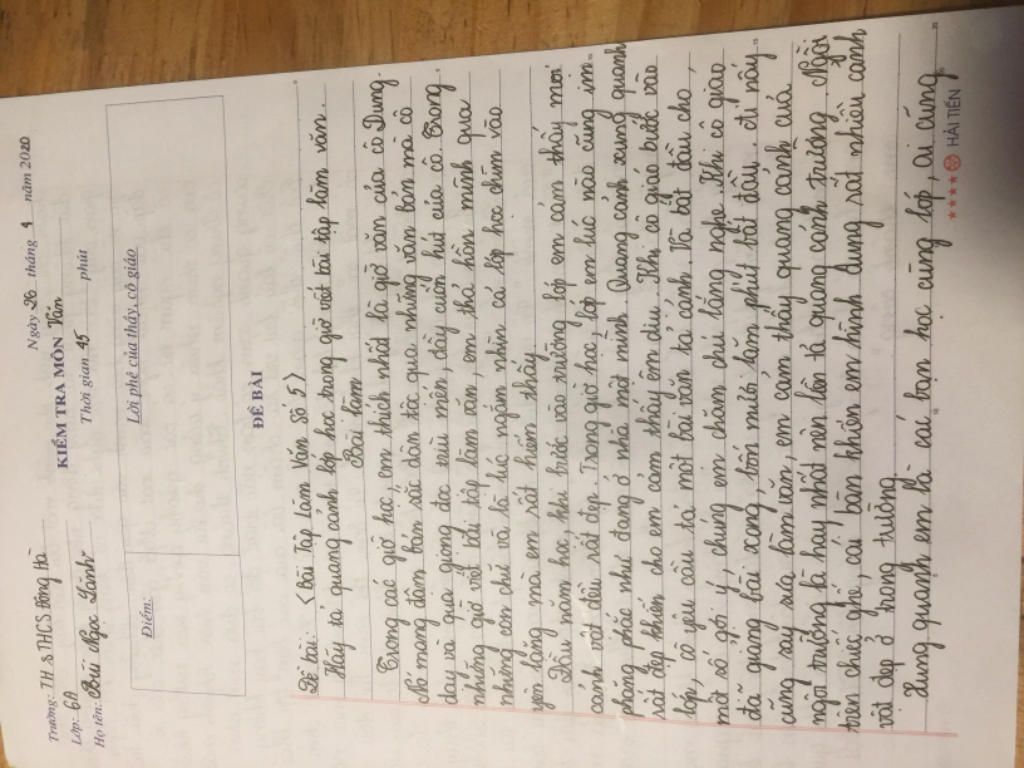 Trường: TH & THCS Đông Hà
Lớp: 6A
Họ tên: Bùi Ngọc Lành
Ngày 26 tháng 4 năm 2020
KIỂM TRA MÔN Văn
Thời gian: 45 phút
Điểm:
Lời phê của thầy, cô giáo
ĐỀ BÀI
Đề bài: <Bài Tập Làm Văn Số 5>
Hãy tả quang cảnh lớp học trong giờ viết bài tập làm văn.
Bài làm
Trong các giờ học, em thích nhất là giờ văn của cô Dung.
Nó mang đậm bản sắc dân tộc qua những văn bản mà cô
dạy và qua giọng đọc trìu mến, đầy cuốn hút của cô. Trong
những giờ viết bài tập làm văn, em thả hồn mình qua
những con chữ và là lúc ngắm nhìn cả lớp học chìm vào
yên lặng mà em rất hiếm thấy.
Đầu năm học, khi bước vào trường lớp em cảm thấy mọi
cảnh vật đều rất đẹp. Trong giờ học, lớp em lúc nào cũng im
phăng phắc như đang ở nhà mở mình. Quang cảnh xung quanh
rất đẹp khiến cho em cảm thấy êm dịu. Khi cô giáo bước vào
lớp, cô yêu cầu tả một bài văn tả cảnh. Và bắt đầu cho
một số gợi ý, chúng em chăm chú lắng nghe. Khi cô giáo
đã giảng bài xong, bốn mươi lăm phút bắt đầu. đi nấy
cũng say sưa làm văn, em cảm thấy quang cảnh của
ngôi trường là hay nhất nên lên tả quang cảnh trường. Ngồi
trên chiếc ghế, cái bàn khiến em hình dung rất nhiều cảnh
vật đẹp ở trong trường
Xung quanh em là cái bạn học cùng lớp, ai cũng
HẢI TIẾN